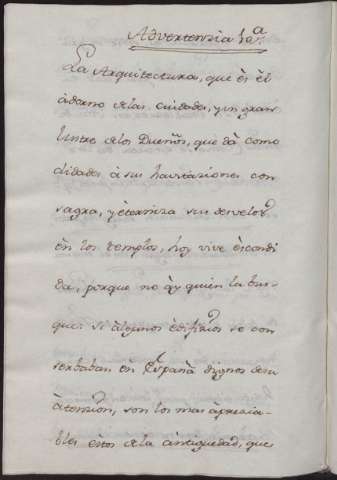 Advertenzia 1.ª
La Arquitectura, que és él
adorno de las Ciudades, y un gran
lustre de los Dueños, que dà como
didades à sus havitaziones con
sagra, y éterniza sus desvelos
én los templos, hoy vive éscondi
da, porque no ay quien la bus
que: si àlgunos édifizios se con
serbaban én España dignos de su
àtenzion, son los mas àpresia-
bles éstos de la àntiguedad, que